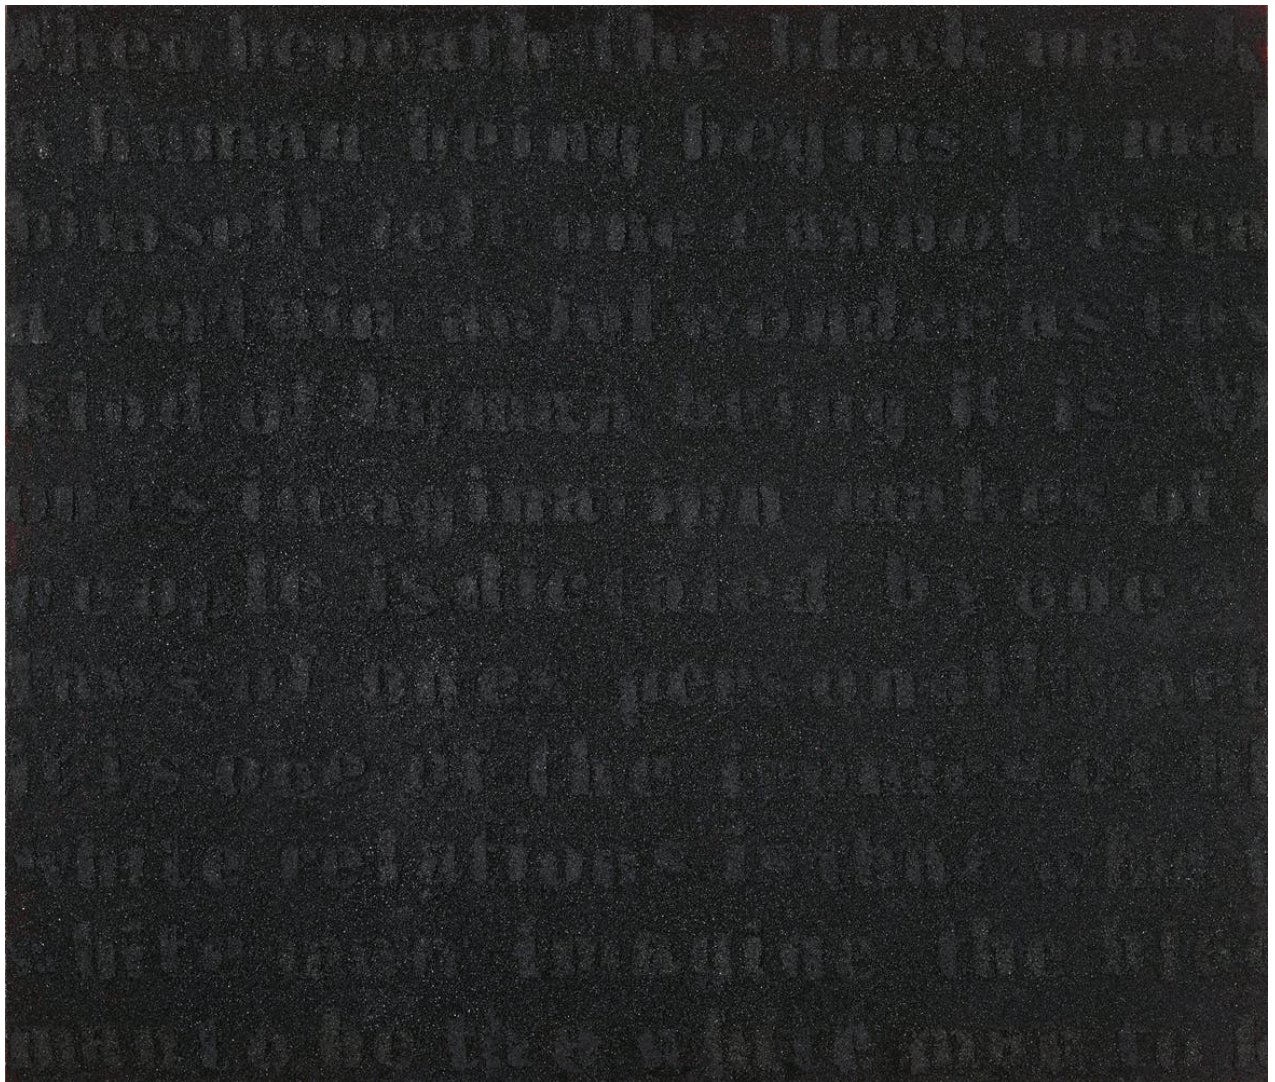 When beneath the black mask
a human being begins to mak
himself felt one cannot escap
a certain awful wonder as to
kind of human being it is. Wh
ones imagination makes of o
people is dictated by one
laws of ones personality and
it is one of the ironies of bl
white relations is that
white man imagine the blac
man to be the white man